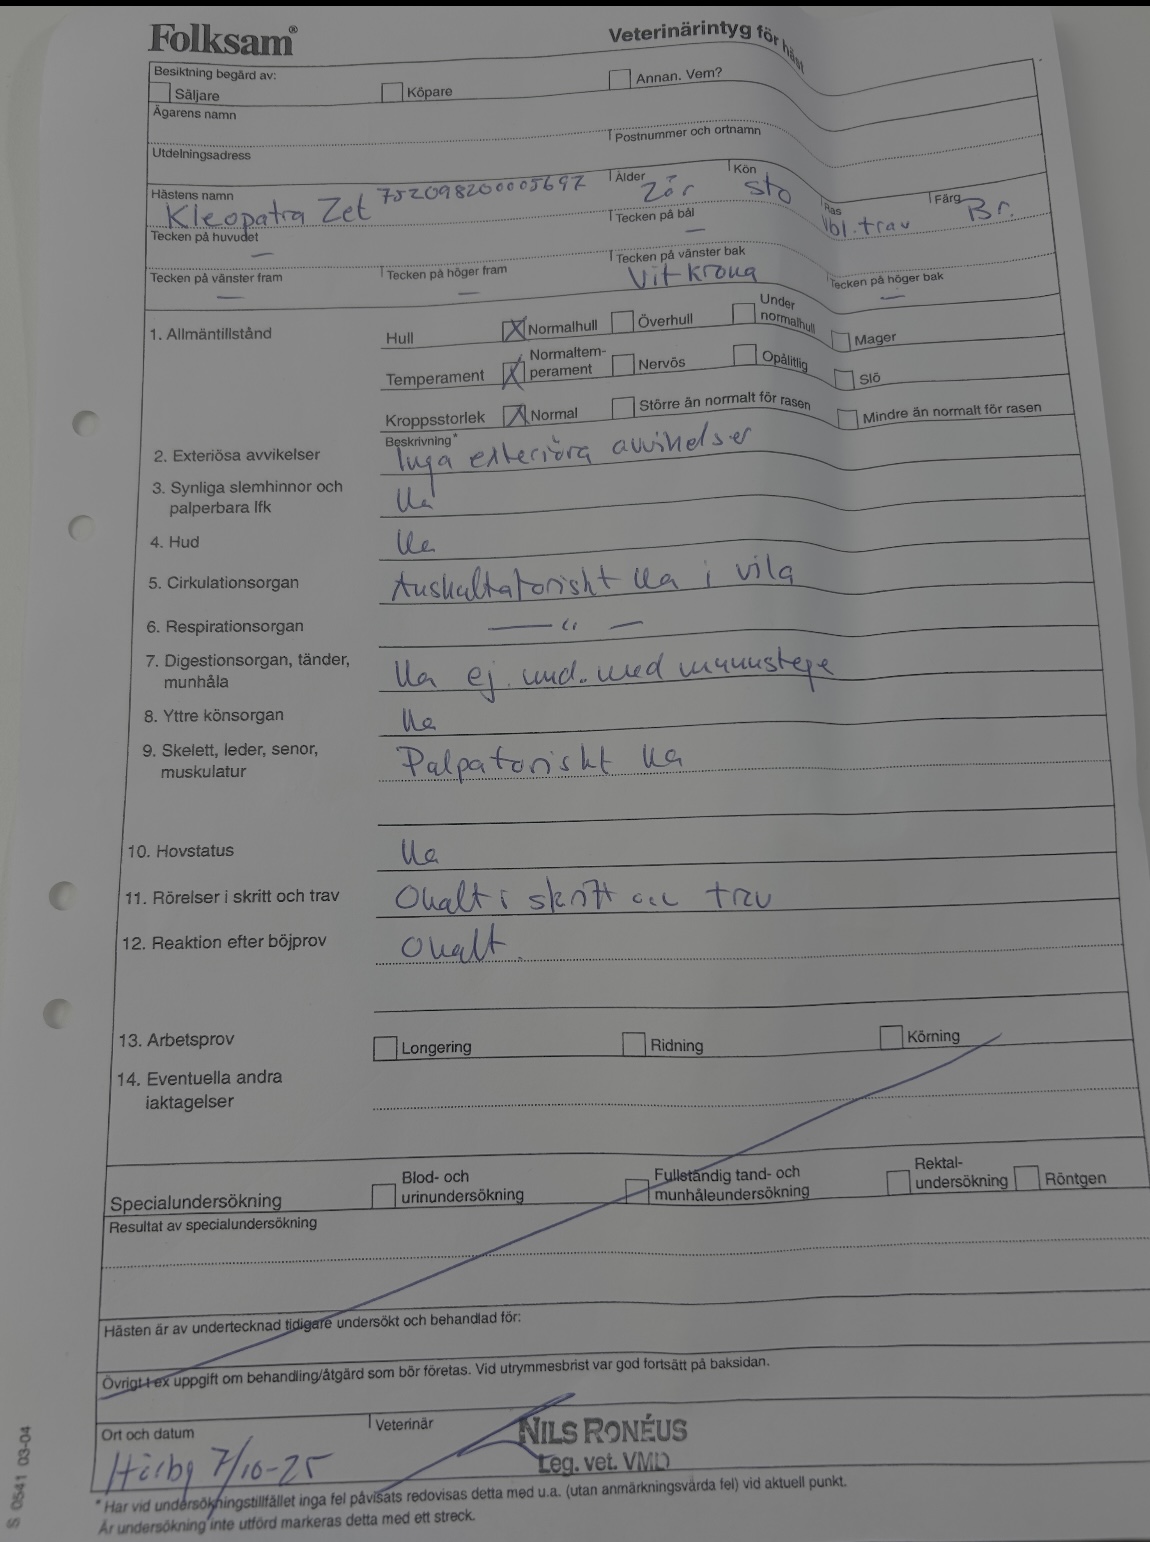 Folksam®
Veterinärintyg för häst
Besiktning begärd av:
Säljare Köpare Annan. Vem?
Ägarens namn
Utdelningsadress Postnummer och ortnamn
Hästens namn Ålder Kön Ras Färg
Kleopatra Zet 752098200005697 2år sto Vbl. trav Br.
Tecken på huvudet Tecken på bål
— —
Tecken på vänster fram Tecken på höger fram Tecken på vänster bak Tecken på höger bak
— — Vit krona —
1. Allmäntillstånd Hull X Normalhull Överhull Under normalhull Mager
Temperament X Normaltem-
perament Nervös Opålitlig Slö
Kroppsstorlek X Normal Större än normalt för rasen Mindre än normalt för rasen
Beskrivning*
2. Exteriösa avvikelser Inga exteriöra avvikelser
3. Synliga slemhinnor och
palperbara lfk Ua
4. Hud Ua
5. Cirkulationsorgan Auskultatoriskt Ua i vila
6. Respirationsorgan — " —
7. Digestionsorgan, tänder,
munhåla Ua ej. und. med munstege
8. Yttre könsorgan Ua
9. Skelett, leder, senor,
muskulatur Palpatoriskt Ua
10. Hovstatus Ua
11. Rörelser i skritt och trav Ohalt i skritt och trav
12. Reaktion efter böjprov Ohalt.
13. Arbetsprov Longering Ridning Körning
14. Eventuella andra
iaktagelser
Specialundersökning Blod- och
urinundersökning Fullständig tand- och
munhåleundersökning Rektal-
undersökning Röntgen
Resultat av specialundersökning
Hästen är av undertecknad tidigare undersökt och behandlad för:
Övrigt t ex uppgift om behandling/åtgärd som bör företas. Vid utrymmesbrist var god fortsätt på baksidan.
Ort och datum Veterinär
Hörby 7/10-25
NILS RONÉUS
Leg. vet. VMD
* Har vid undersökningstillfället inga fel påvisats redovisas detta med u.a. (utan anmärkningsvärda fel) vid aktuell punkt.
Är undersökning inte utförd markeras detta med ett streck.
S 0541 03-04